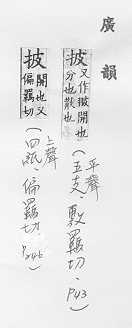 廣韻
披
又作開也
分也散也
平聲
(五支、敷羈切、P43)
披
開也又
偏羈切
上聲
(四紙、偏羈切、